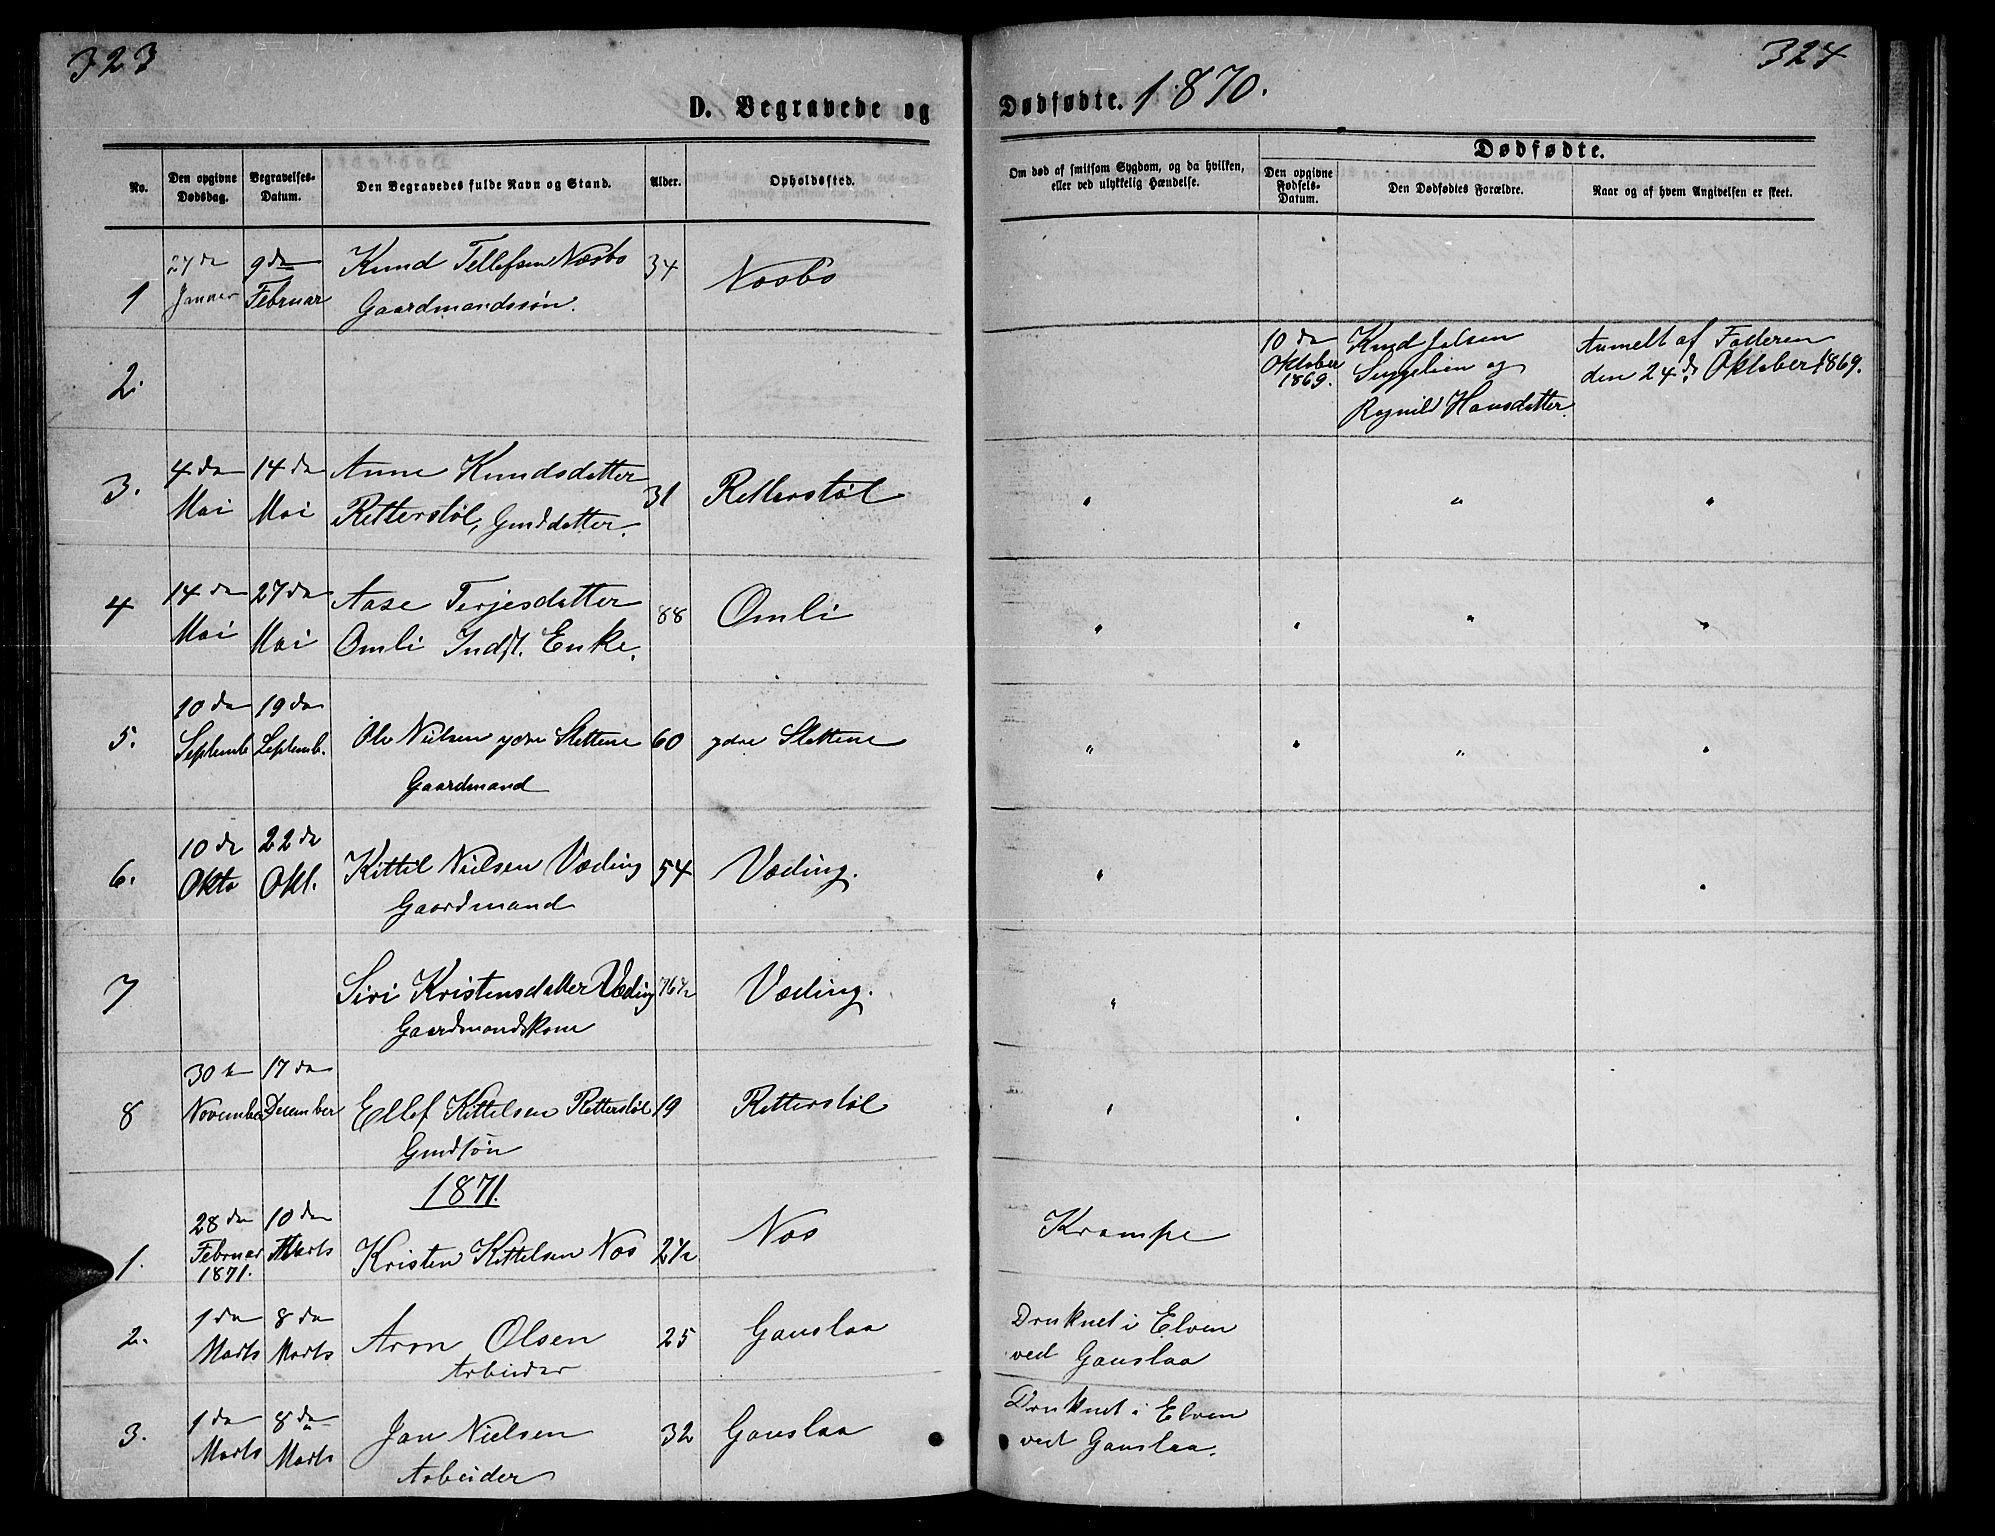 323
324
D. Begravede og
Dødfødte. 1870.
No.
Den opgivne Dødsdag.
Begravelses-Datum.
Den Begravedes fulde Navn og Stand.
Alder.
Opholdssted.
Om død af smitsom Sygdom, og da hvilken, eller ved ulykkelig Hændelse.
Dødfødte.
Den opgivne Fødsels-Datum.
Den Dødfødtes Forældre.
Naar og af hvem Angivelsen er skeet.
1 24de Januar 9de Februar Knud Tellefsen Næsbø 34 Næsbø
Gaardmandssøn.
2. 10de Oktober 1869. Knud Anmelt af Faderen
og den 24de Oktober 1869.
Ragnild Hansdatter
3. 4de Mai 14de Mai Anne Knudsdatter 31 Retterstøl " " "
Retterstøl, Gmddatter.
4 14de Mai 27de Mai Aase Terjesdatter 88 Omli " " " "
Omli Indst. Enke.
5. 10de Septemb 19de Septemb. Ole Nielsen ydre Slettene 60 ydre Slettene " " " "
Gaardmand
6. 10de Okto 22de Okt. Kittil Nielsen Væding 54 Væding. " "
Gaardmand
7 Siri Kristensdatter Væding 76½ Væding. "
Gaardmandskone
8 30te November 17de December Ellef Kittelsen Retterstøl 19 Retterstøl " "
Gmdsøn
1871.
1. 28de Februar 1871. 10de Marts Kristen Kittelsen Næs 2½ Næs Krampe
2. 1de Marts 8de Marts Aron Olsen 25 Gauslaa Druknet i Elven
Arbeider ved Gauslaa
3. 1de Marts 8de Marts Jan Nielsen 32 Gauslaa Druknet i Elven
Arbeider ved Gauslaa.